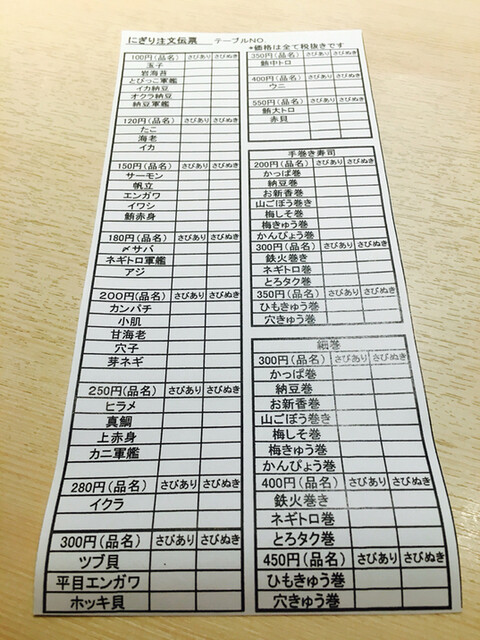 にぎり注文伝票　テーブルNO.
*価格は全て税抜きです
100円(品名) さびあり さびぬき
玉子
岩海苔
とびっこ軍艦
イカ納豆
オクラ納豆
納豆軍艦
120円(品名) さびあり さびぬき
たこ
海老
イカ
150円(品名) さびあり さびぬき
サーモン
帆立
エンガワ
イワシ
鮪赤身
180円(品名) さびあり さびぬき
〆サバ
ネギトロ軍艦
アジ
200円(品名) さびあり さびぬき
カンパチ
小肌
甘海老
穴子
芽ネギ
250円(品名) さびあり さびぬき
ヒラメ
真鯛
上赤身
カニ軍艦
280円(品名) さびあり さびぬき
イクラ
300円(品名) さびあり さびぬき
ツブ貝
平目エンガワ
ホッキ貝
350円(品名) さびあり さびぬき
鮪中トロ
400円(品名) さびあり さびぬき
ウニ
550円(品名) さびあり さびぬき
鮪大トロ
赤貝
手巻き寿司
200円(品名) さびあり さびぬき
かっぱ巻
納豆巻
お新香巻
山ごぼう巻き
梅しそ巻
梅きゅう巻
かんぴょう巻
300円(品名) さびあり さびぬき
鉄火巻き
ネギトロ巻
とろタク巻
350円(品名) さびあり さびぬき
ひもきゅう巻
穴きゅう巻
細巻
300円(品名) さびあり さびぬき
かっぱ巻
納豆巻
お新香巻
山ごぼう巻き
梅しそ巻
梅きゅう巻
かんぴょう巻
400円(品名) さびあり さびぬき
鉄火巻き
ネギトロ巻
とろタク巻
450円(品名) さびあり さびぬき
ひもきゅう巻
穴きゅう巻